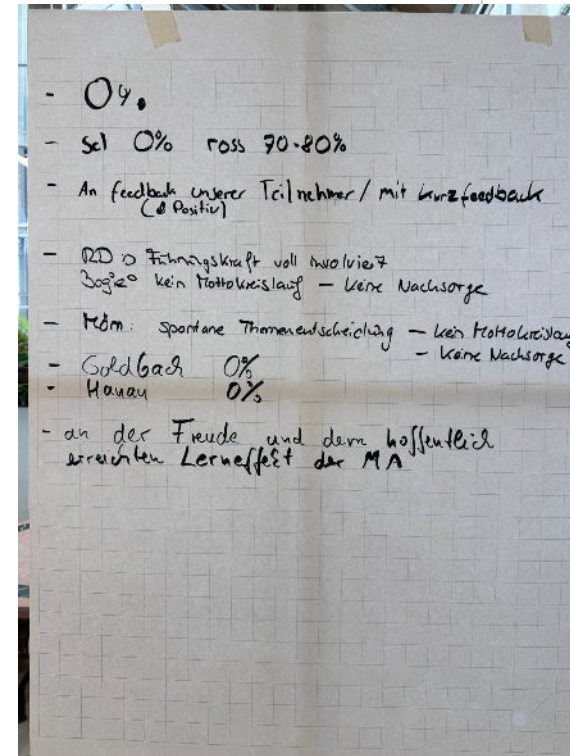 - 0%.
- Sel 0% ross 70-80%
- An feedback unserer Teilnehmer / mit kurzfeedback
( Positiv)
- RD : Führungskraft voll involviert
kein Mottokreislauf - keine Nachsorge
- Möm: spontane Themenentscheidung - kein Mottokreislauf
- keine Nachsorge
- Goldbach 0%
- Hanau 0%
- an der Freude und dem hoffentlich
erreichten Lerneffekt der MA